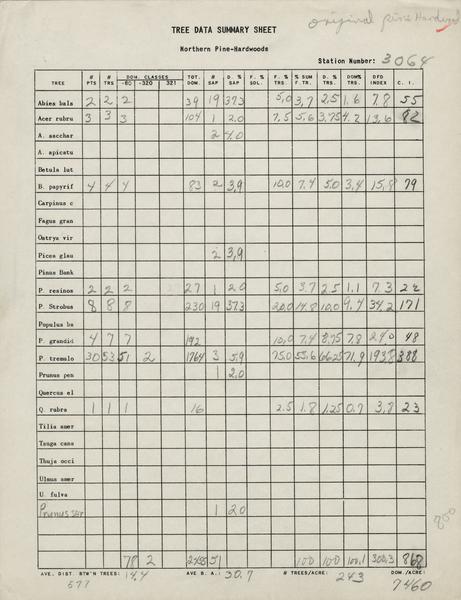 original pine Hardwood
TREE DATA SUMMARY SHEET
Northern Pine-Hardwoods
Station Number: 3064
TREE # PTS # TRS DOM. CLASSES -80 -320 321 TOT. DOM. # SAP D. % SAP F. % SDL. F. % TRS. % SUM F. TR. D. % TRS. DOM% TRS. DFD INDEX C. I.
Abies bals 2 2 2 39 19 37.3 5.0 3.7 2.5 1.6 7.8 55
Acer rubru 3 3 3 104 1 2.0 7.5 5.6 3.75 4.2 13.6 82
A. sacchar 2 4.0
A. spicatu
Betula lut
B. papyrif 4 4 4 83 2 3.9 10.0 7.4 5.0 3.4 15.8 79
Carpinus c
Fagus gran
Ostrya vir
Picea glau 2 3.9
Pinus Bank
P. resinos 2 2 2 27 1 2.0 5.0 3.7 2.5 1.1 7.3 22
P. Strobus 8 8 8 230 19 37.3 20.0 14.8 10.0 9.4 34.2 171
Populus ba
P. grandid 4 7 7 192 10.0 7.4 8.75 7.8 24.0 48
P. tremulo 30 53 51 2 1764 3 5.9 75.0 55.6 66.25 71.9 193.8 388
Prunus pen 1 2.0
Quercus el
Q. rubra 1 1 1 16 2.5 1.8 1.25 0.7 3.8 23
Tilia amer
Tsuga cana
Thuja occi
Ulmus amer
U. fulva
Prunus ser 1 2.0
78 2 2455 51 100 100 100.1 300.3 868
AVE. DIST. BTW'N TREES: 14.4 AVE B. A.: 30.7 # TREES/ACRE: 243 DOM./ACRE:
577 7460